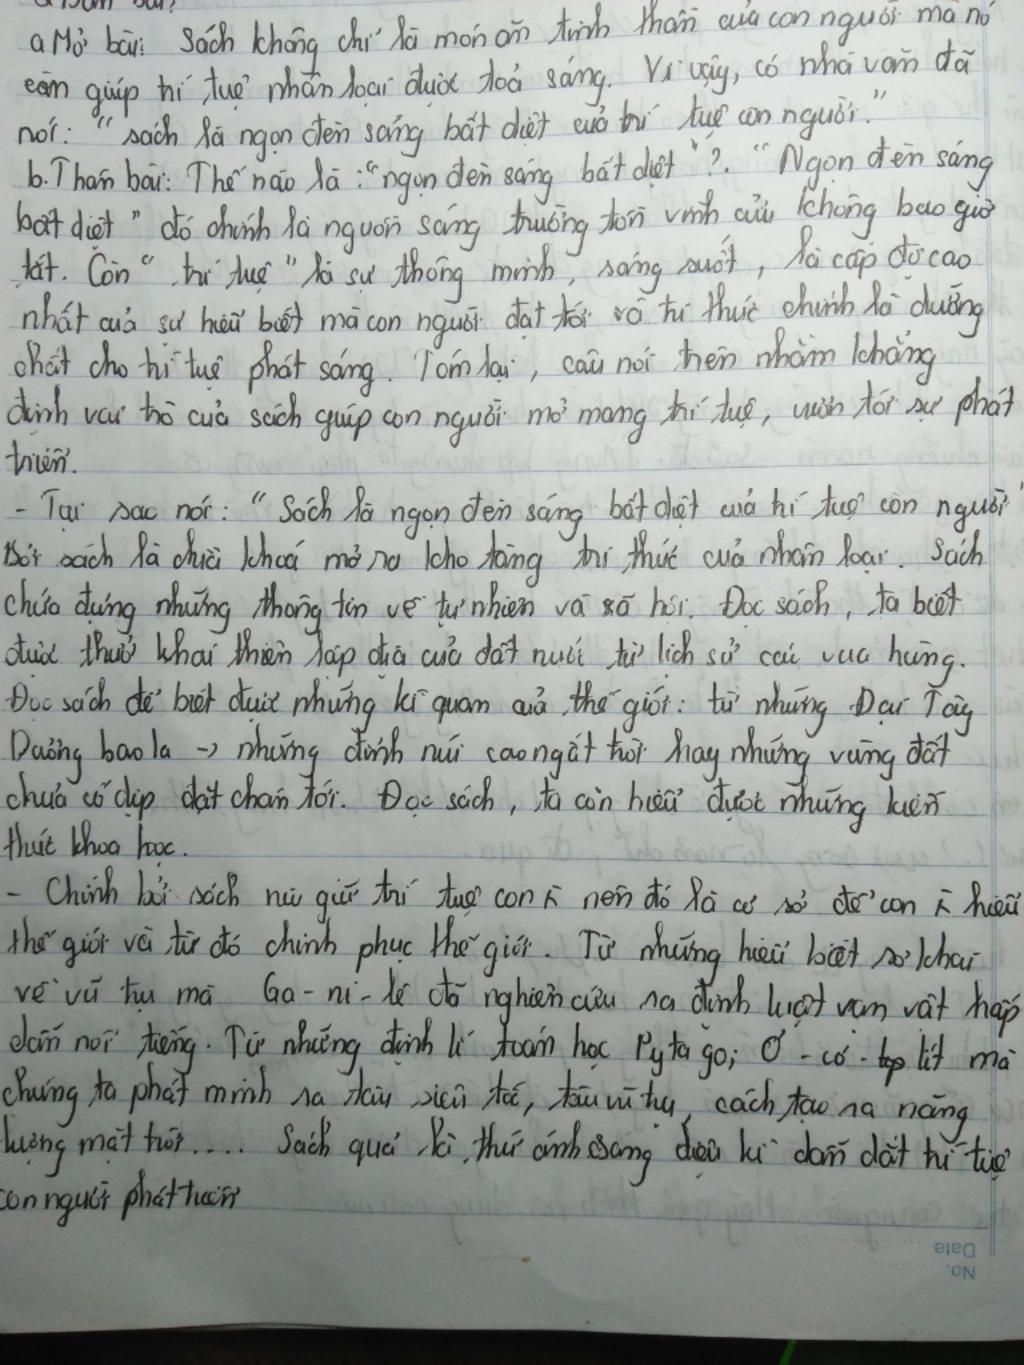 a Mở bài: Sách không chỉ là món ăn tinh thần của con người mà nó
còn giúp trí tuệ nhân loại được toả sáng. Vì vậy, có nhà văn đã
nói: "sách là ngọn đèn sáng bất diệt của trí tuệ con người."
b. Thân bài: Thế nào là: "ngọn đèn sáng bất diệt"? "Ngọn đèn sáng
bất diệt" đó chính là nguồn sáng trường tồn vĩnh cửu không bao giờ
tắt. Còn "trí tuệ" là sự thông minh, sáng suốt, là cấp độ cao
nhất của sự hiểu biết mà con người đạt tới và tri thức chính là dưỡng
chất cho trí tuệ phát sáng. Tóm lại, câu nói trên nhằm khẳng
định vai trò của sách giúp con người mở mang trí tuệ, vươn tới sự phát
triển.
- Tại sao nói: "Sách là ngọn đèn sáng bất diệt của trí tuệ con người"
Bởi sách là chìa khoá mở ra kho tàng tri thức của nhân loại. Sách
chứa đựng những thông tin về tự nhiên và xã hội. Đọc sách, ta biết
được thuở khai thiên lập địa của đất nước từ lịch sử các vua hùng.
Đọc sách để biết được những kì quan của thế giới: từ những Đại Tây
Dương bao la → những đỉnh núi cao ngất trời hay những vùng đất
chưa có dịp đặt chân tới. Đọc sách, ta còn hiểu được những kiến
thức khoa học.
- Chính bởi sách níu giữ trí tuệ con nên đó là cơ sở để con hiểu
thế giới và từ đó chinh phục thế giới. Từ những hiểu biết sơ khai
về vũ trụ mà Ga-ni-lê đã nghiên cứu ra định luật vạn vật hấp
dẫn nổi tiếng. Từ những định lí toán học Pytago; Ơ-cơ-lít mà
chúng ta phát minh ra tàu siêu tốc, tàu vũ trụ, cách tạo ra năng
lượng mặt trời.... Sách quả là thứ ánh sáng diệu kì dẫn dắt trí tuệ
con người phát triển
No.
Date